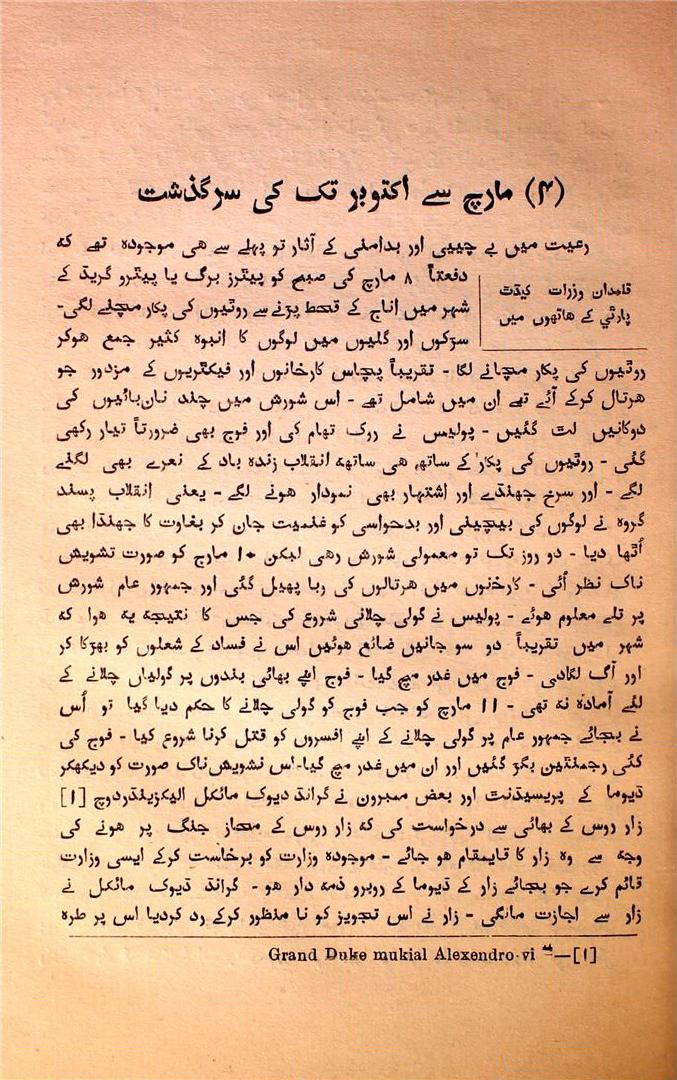 (۴) مارچ سے اکتوبر تک کی سرگذشت
رعیت میں بے چینی اور بدامنی کے آثار تو پہلے سے ھی موجودہ تھے کہ
قلمدان وزرات کیڈٹ
پارٹي کے ھاتھوں میں
دفعتاً ۸ مارچ کی صبح کو پیٹرز برگ یا پیٹرو گریڈ کے
شہر میں اناج کے قحط پڑنے سے روٹیوں کی پکار مچنے لگی-
سڑکوں اور گلیوں میں لوگوں کا انبوہ کثیر جمع ھوکر
روٹیوں کی پکار مچانے لگا - تقریباً پچاس کارخانوں اور فیکٹریوں کے مزدور جو
ھرتال کرکے آئے تھے ان میں شامل تھے - اس شورش میں چند نان‌بائیوں کی
دوکانیں لٹ گئیں - پولیس نے روک تھام کی اور فوج بھی ضرورتاً تیار رکھی
گئی - روٹیوں کی پکار کے ساتھ ھی ساتھ انقلاب زندہ باد کے نعرے بھی لگنے
لگے - اور سرخ جھنڈے اور اشتہار بھی نمودار ھونے لگے - یعنی انقلاب پسند
گروہ نے لوگوں کی بیچینی اور بدحواسی کو غنمیت جان کر بغاوت کا جھنڈا بھی
اُٹھا دیا - دو روز تک تو معمولی شورش رھی لیکن ۱۰ مارچ کو صورت تشویش
ناک نظر اُئی - کارخنوں میں ھرتالوں کی ربا پھیل گئی اور جمہور عام شورش
پر تلے معلوم ھوئے - پولیس نے گولی چلانی شروع کی جس کا نتیجہ یہ ھوا کہ
شہر میں تقریباً دو سو جانیں ضائع ھوئیں اس نے فساد کے شعلوں کو بھڑکا کر
اور آگ لگادی - فوج میں غدر مچ گیا - فوج اپنے بھائی بندوں پر گولیاں چلانے کے
لئے آمادہ نہ تھی - ۱۱ مارچ کو جب فوج کو گولی چلانے کا حکم دیا گیا تو اُس
نے بجائے جمہور عام پر گولی چلانے کے اپنے افسروں کو قتل کرنا شروع کیا - فوج کی
کئی رجمنٹین بگڑ گئیں اور ان میں غدر مچ گیا-اس تشویش‌ناک صورت کو دیکھکر
ڈیوما کے پریسیڈنٹ اور بعض ممبرون نے گرانڈ ڈیوک مائکل الیکزینڈردوچ [۱]
زار روس کے بھائی سے درخواست کی کہ زار روس کے محاز جنگ پر ھونے کی
وجہ سے وہ زار کا قایمقام ھو جائے - موجودہ وزارت کو برخاست کرکے ایسی وزارت
قائم کرے جو بجائے زار کے ڈیوما کے روبرو ذمہ دار ھو - گرانڈ ڈیوک مائکل نے
زار سے اجازت مانگی - زار نے اس تجویز کو نا منظور کرکے رد کردیا اس پر طرہ
Grand Duke mukial Alexendro-vi —[۱]